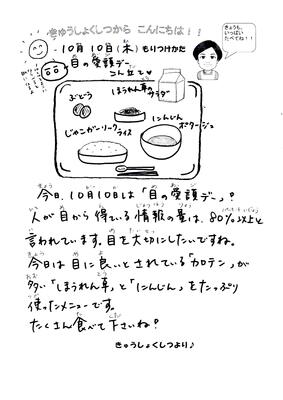 きゅうしょくしつから こんにちは!!
10月10日(木) もりつけかた
目の愛護デー
こんだて
きょうも、
いっぱい
たべてね!!
ぶどう
ほうれん草の
サラダ
じゃこガーリック
ライス
にんじん
ポタージュ
今日、10月10日は「目の愛護デー」?
人が目から得ている情報の量は、80%以上と
言われています。目を大切にしたいですね。
今日は目に良いとされている「カロテン」が
多い「ほうれん草」と「にんじん」をたっぷり
使ったメニューです。
たくさん食べて下さいね!
きゅうしょくしつより♪